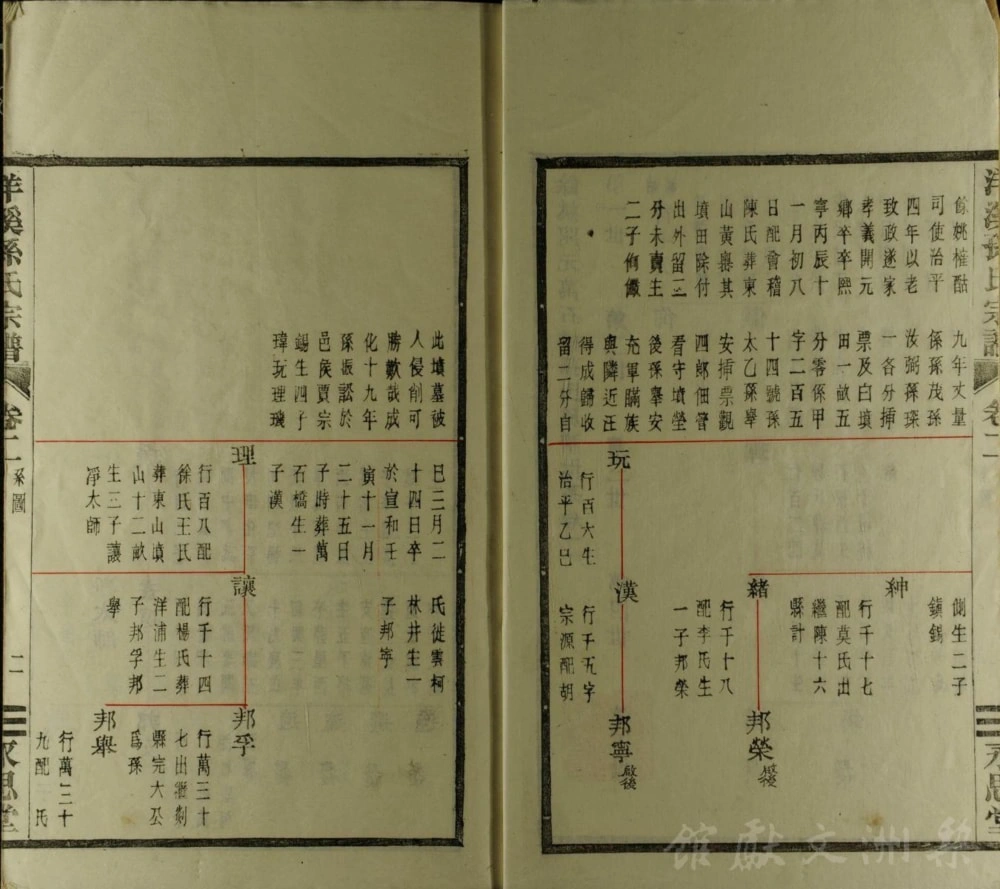 餘姚榷酤
司使治平
四年以老
致政遂家
孝義開元
鄉卒卒熙
寧丙辰十
一月初八
日配會稽
陳氏葬東
山黃㠗其
墳田除付
出外留三
分未賣生
二子侚儼
九年丈量
係孫茂孫
汝弼孫琛
一各分揷
票及白墳
田一畝五
分零係甲
字二百五
十四號孫
太乙孫皋
安揷票覾
四郎佃管
看守墳塋
後孫皋安
充單瞞族
與隣近汪
得成歸收
留二分自
側生二子
鎮錫
紳
行千十七
配莫氏出
繼陳十六
縣計
緒
行千十八
配李氏生
一子邦榮
邦榮
啟後
玩
行百六生
治平乙巳
漢
行千五字
宗源配胡
邦寧
啟後
洋溪孫氏宗譜
卷二
永思堂
此墳墓被
人侵削可
勝歎哉成
化十九年
孫振訟於
邑侯賈宗
錫生四子
瑋玩理璣
巳三月二
十四日卒
於宣和壬
寅十一月
二十五日
子時葬萬
石橋生一
子漢
氏徙雲柯
林井生一
子邦寧
理
行百八配
徐氏王氏
葬東山墳
山十二畝
生三子讓
凈太師
讓
行千十四
配楊氏葬
洋浦生二
子邦孚邦
舉
邦孚
行萬三十
七出繼剡
縣完大公
爲孫
邦舉
行萬三十
九配 氏
洋溪孫氏宗譜
卷二
系圖
二
永思堂
梨洲文獻館